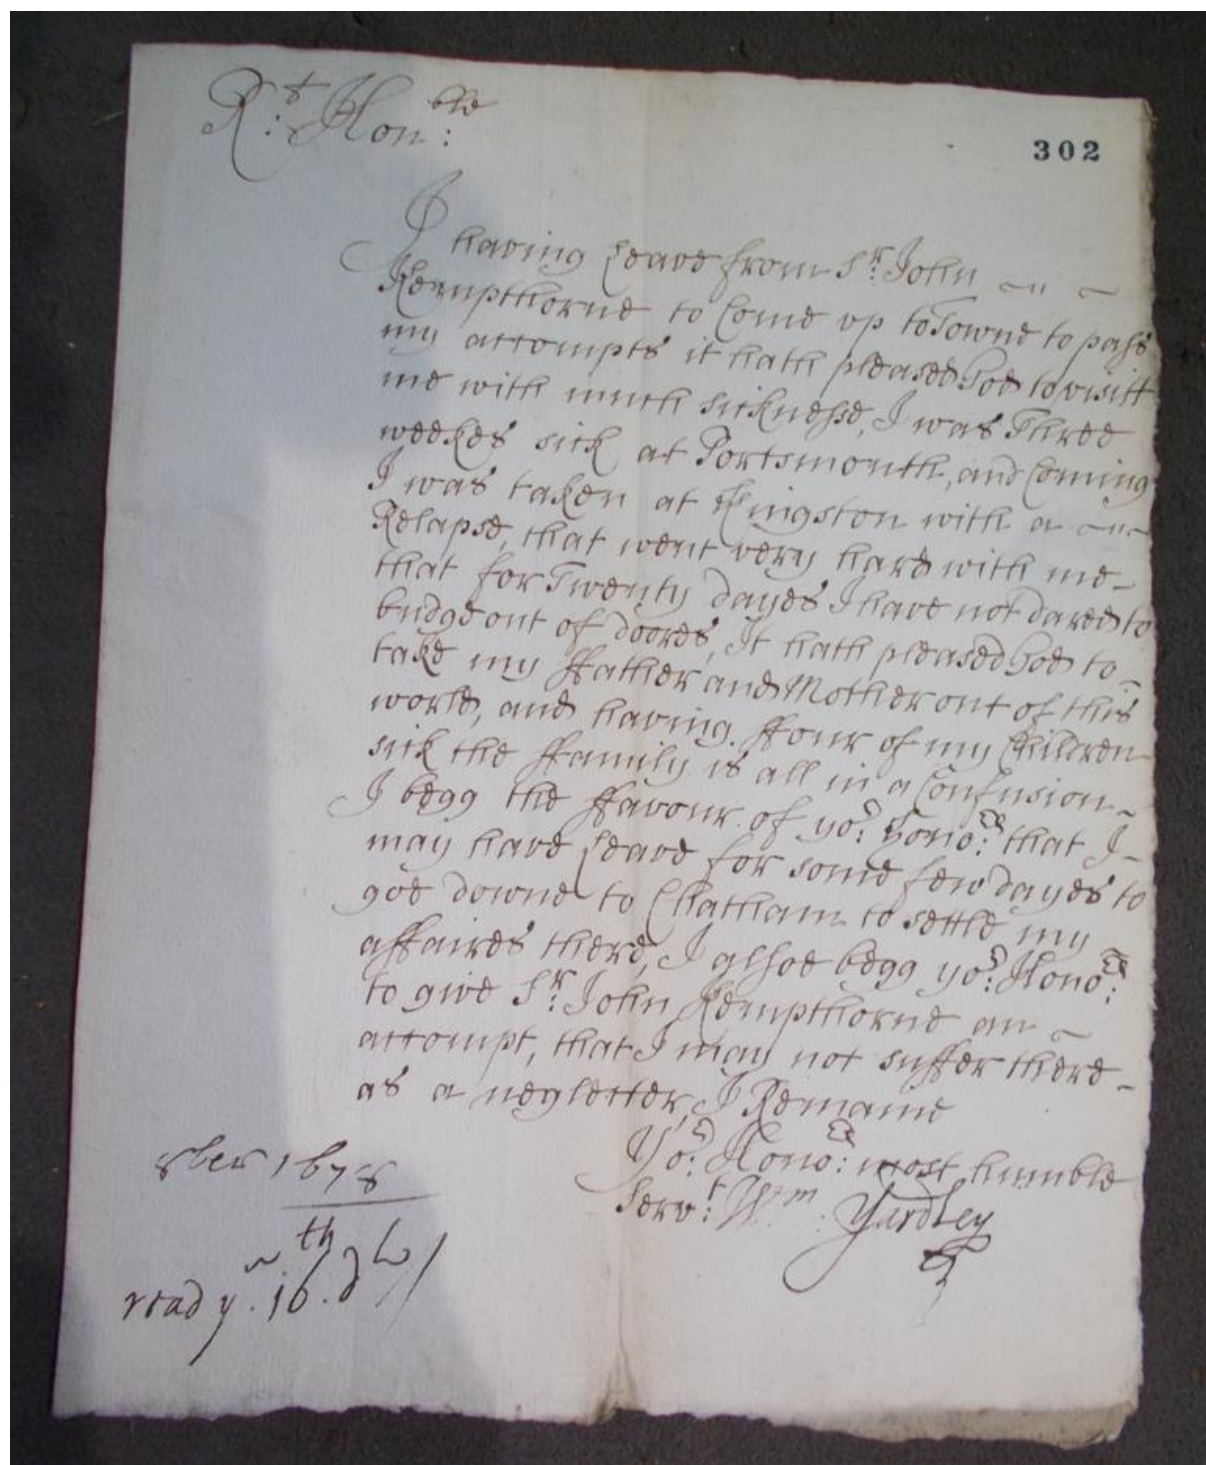 Rt: Honble:
302
I having Leave from Sr: John
Kempthorne to Come vp to Towne to pass
my accompts it hath pleased God to visitt
me with much sicknesse, I was Three
weekes sick at Portsmouth, and Coming
I was taken at Kingston with a
Relapse, that went very hard with me
that for Twenty dayes I have not dared to
budge out of doores, It hath pleased God to
take my ffather and Mother out of this
world, and having ffour of my Children
sick the ffamily is all in a Confusion
I begg the ffavour of yor: Honors: that I
may have Leave for some few dayes to
goe downe to Chatham to settle my
affaires there, I alsoe begg yor: Honors:
to give Sr: John Kempthorne an
accompt, that I may not suffer there
as a neglecter, I Remaine
Yor: Honors: most humble
Servt: Wm: Yardley
8ber 1678
read ye. 16th. do